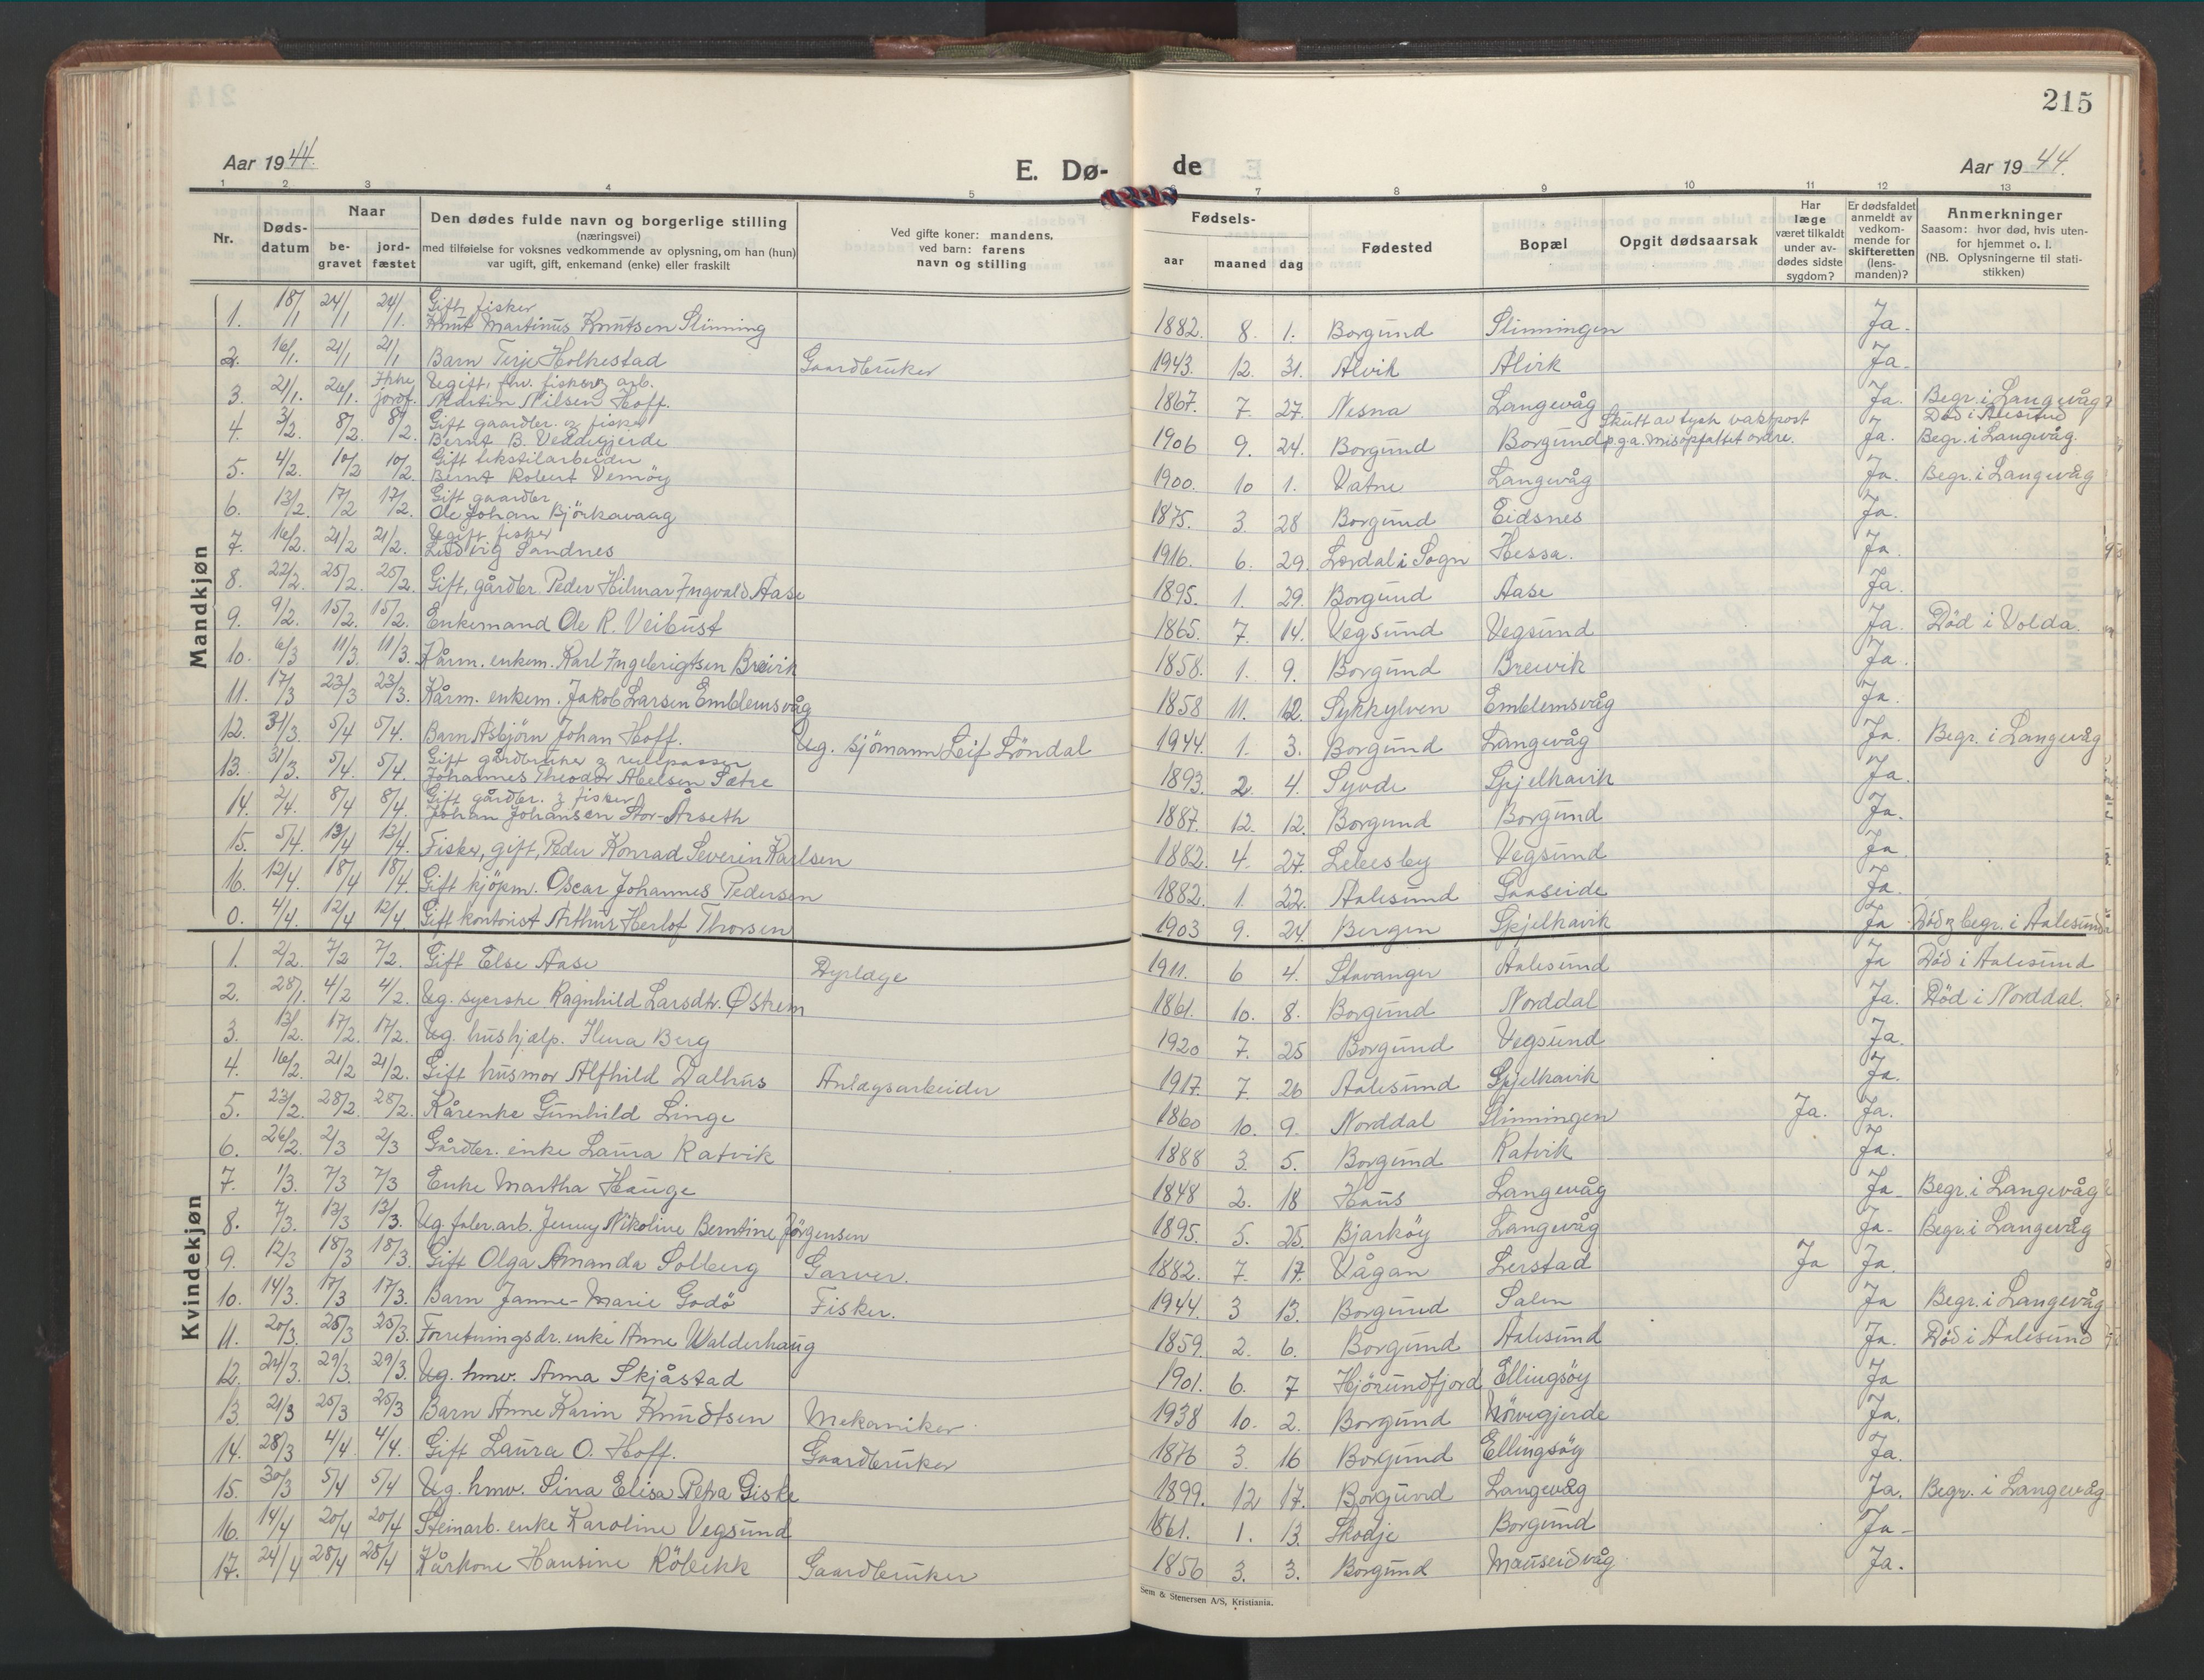 215
Aar 1944.
E. Dø-
de
Aar 1944.
1 2 3 4 5 6 7 8 9 10 11 12 13
Nr.
Døds-
datum
Naar
be-
gravet
jord-
fæstet
Den dødes fulde navn og borgerlige stilling
(næringsvei)
med tilføielse for voksnes vedkommende av oplysning, om han (hun)
var ugift, gift, enkemand (enke) eller fraskilt
Ved gifte koner: mandens,
ved barn: farens
navn og stilling
Fødsels-
aar maaned dag
Fødested
Bopæl
Opgit dødsaarsak
Har
læge
været tilkaldt
under av-
dødes sidste
sygdom?
Er dødsfaldet
anmeldt av
vedkom-
mende for
skifteretten
(lens-
manden)?
Anmerkninger
Saasom: hvor død, hvis uten-
for hjemmet o. l.
(NB. Oplysningerne til stati-
stikken)
Mandkjøn
Gift, fisker
1. 18/1 24/1 24/1. Knut Martinus Knutsen Slinning 1882. 8. 1. Borgund Slinningen Ja.
2. 16/1. 21/1 21/1 Barn Terje Holkestad Gaardbruker 1943. 12. 31. Alvik Alvik Ja.
Ikke Ugift, fhv. fisker og arb.
3. 21/1. 26/1. jordf. Martin Nilsen Hoff. 1867. 7. 27. Nesna Langevåg Ja. Begr. i Langevåg
Gift gaardbr. & fisker Skutt av tysk vaktpost Död i Aalesund
4. 3/2. 8/2. 8/2. Bernt B. Veddegjerde 1906 9. 24. Borgund Borgund p.g.a. misopfattet ordre. Ja. Begr. i Langevåg.
Gift tekstilarbeider
5. 4/2. 10/2 10/2. Bernt Robert Vemöy 1900. 10 1. Vatne Langevåg Ja. Begr. i Langevåg
Gift gaardbr
6. 13/2. 17/2 17/2. Ole Johan Björkavaag 1875. 3. 28 Borgund Eidsnes Ja.
Ugift fisker
7. 16/2. 21/2 21/2. Ludvig Sandnes 1916. 6. 29. Lærdal i Sogn Hessa. Ja.
8. 22/2. 25/2. 25/2. Gift, gårdbr. Peder Hilmar Ingvald Aase 1895. 1. 29. Borgund Aase Ja.
9. 9/2. 15/2. 15/2. Enkemand Ole R. Veibust 1865. 7. 14. Vegsund Vegsund Ja. Död i Volda.
10. 6/3 11/3. 11/3. Kårm. enkem. Karl Ingebrigtsen Breivik 1858. 1. 9. Borgund Breivik Ja.
11. 17/3 23/3 23/3. Kårm. enkem. Jakob Larsen Emblemsvåg 1858 11. 12. Sykkylven Emblemsvåg Ja.
12. 31/3. 5/4 5/4. Barn Asbjörn Johan Hoff. Ug. sjömann Leif Löndal 1944. 1. 3. Borgund Langevåg Ja. Begr. i Langevåg
Gift gårdbruker &
13. 31/3. 5/4. 5/4. Johannes Theodor Abelsen Sætre 1893. 2. 4. Syvde Spjelkavik Ja.
Gift gårdbr. & fisker
14. 2/4. 8/4 8/4. Johan Johansen Stor-Årseth 1887. 12. 12. Borgund Borgund Ja.
15. 5/4. 13/4 13/4. Fisker, gift, Peder Konrad Severin Karlsen 1882. 4. 27. Lebesby Vegsund Ja
16. 12/4. 18/4 18/4. Gift kjöpm. Oscar Johannes Pedersen 1882. 1. 22. Aalesund Gaaseide Ja.
0. 4/4. 12/4 12/4. Gift kontorist Arthur Herlof Thorsen 1903 9. 24. Bergen Spjelkavik Ja Död & begr. i Aalesund
Kvindekjøn
1. 2/2. 7/2 7/2. Gift Else Aase Dyrlæge 1911. 6 4. Stavanger Aalesund Ja Död i Aalesund
2. 28/1. 4/2 4/2. Ug. syerske Ragnhild Larsdtr. Østrem 1861. 10. 8. Borgund Norddal Ja. Död i Norddal.
3. 13/2. 17/2. 17/2. Ug. hushjælp. Berg 1920 7. 25 Borgund Vegsund Ja.
4. 16/2. 21/2 21/2. Gift husmor Alfhild Dalhus Anlægsarbeider 1917. 7. 26 Aalesund Spjelkavik Ja.
5. 23/2. 28/2. 28/2. Kårenke Gunhild Linge 1860 10. 9. Norddal Slinningen Ja. Ja.
6. 26/2. 2/3 2/3 Gårdbr. enke Laura Ratvik 1888 3. 5. Borgund Ratvik Ja.
7. 1/3. 7/3 7/3 Enke Martha Hauge 1848 2. 18 Haus Langevåg Ja Begr. i Langevåg
8. 7/3. 13/3 13/3. Ug. fabr.arb. Jenny Nikoline Berntine Jörgensen 1895. 5. 25. Bjarköy Langevåg Ja. Begr. i Langevåg
9. 12/3 18/3 18/3. Gift Olga Amanda Solberg Garver. 1882. 7. 17. Vågan Lerstad Ja Ja.
10. 14/3. 17/3 17/3. Barn Janne-Marie Godö Fisker. 1944. 3 13. Borgund Salen Ja Begr. i Langevåg
11. 20/3. 25/3 25/3. Forretningsdr. enke Anne Walderhaug 1859. 2. 6. Borgund Aalesund Ja. Död i Aalesund
12. 24/3. 29/3. 29/3. Ug. hmv. Anna Skjåstad 1901. 6. 7 Hjörundfjord Ellingsöy Ja
13. 21/3 25/3 25/3 Barn Anne Karin Knudtsen Mekaniker 1938 10. 2. Borgund Nörvegjerde Ja.
14. 28/3 4/4. 4/4. Gift Laura O. Hoff. Gaardbruker 1876 3. 16 Borgund Ellingsöy Ja.
15. 30/3 5/4 5/4 Ug. hmv. Sina Elisa Petra Giske 1899. 12 17. Borgund Langevåg Ja. Begr. i Langevåg
16. 14/4 20/4 20/4 Steinarb. enke Karoline Vegsund 1861. 1. 13. Skodje Borgund Ja
17. 24/4 28/4 28/4 Kårkone Hansine Röbekk Gaardbruker 1856 3. 3. Borgund Mauseidvåg Ja.
Sem & Stenersen A/S, Kristiania.